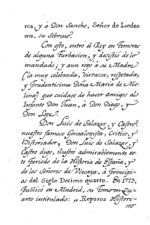 ra, y a Don Sancho, Señor de Ledes-
ma, su Sobrino.
Con esto, entró el Rey en temores
de alguna Turbacion, y desistió de lo
mandado; y aun rogó a su Madre
(la muy celebrada, virtuosa, respetada,
y Prudentísima Doña Maria de Mo-
lina) que cuidase de hacer amigos al
Infante Don Juan, a Don Diego, y
Don Lope.
Don Luis de Salazar, y Castro,
nuestro famoso Genealogista, Critico, y
Historiador, Don Luis de Salazar, y
Castro digo, ilustró admirablemente es-
te Periodo de la Historia de España, y
de los Señores de Vizcaya, a princi-
pios del Siglo Decimo quarto. En 1732
Publicó en Madrid, su Tomo en Qu-
arto intitulado: Reparos Histori-